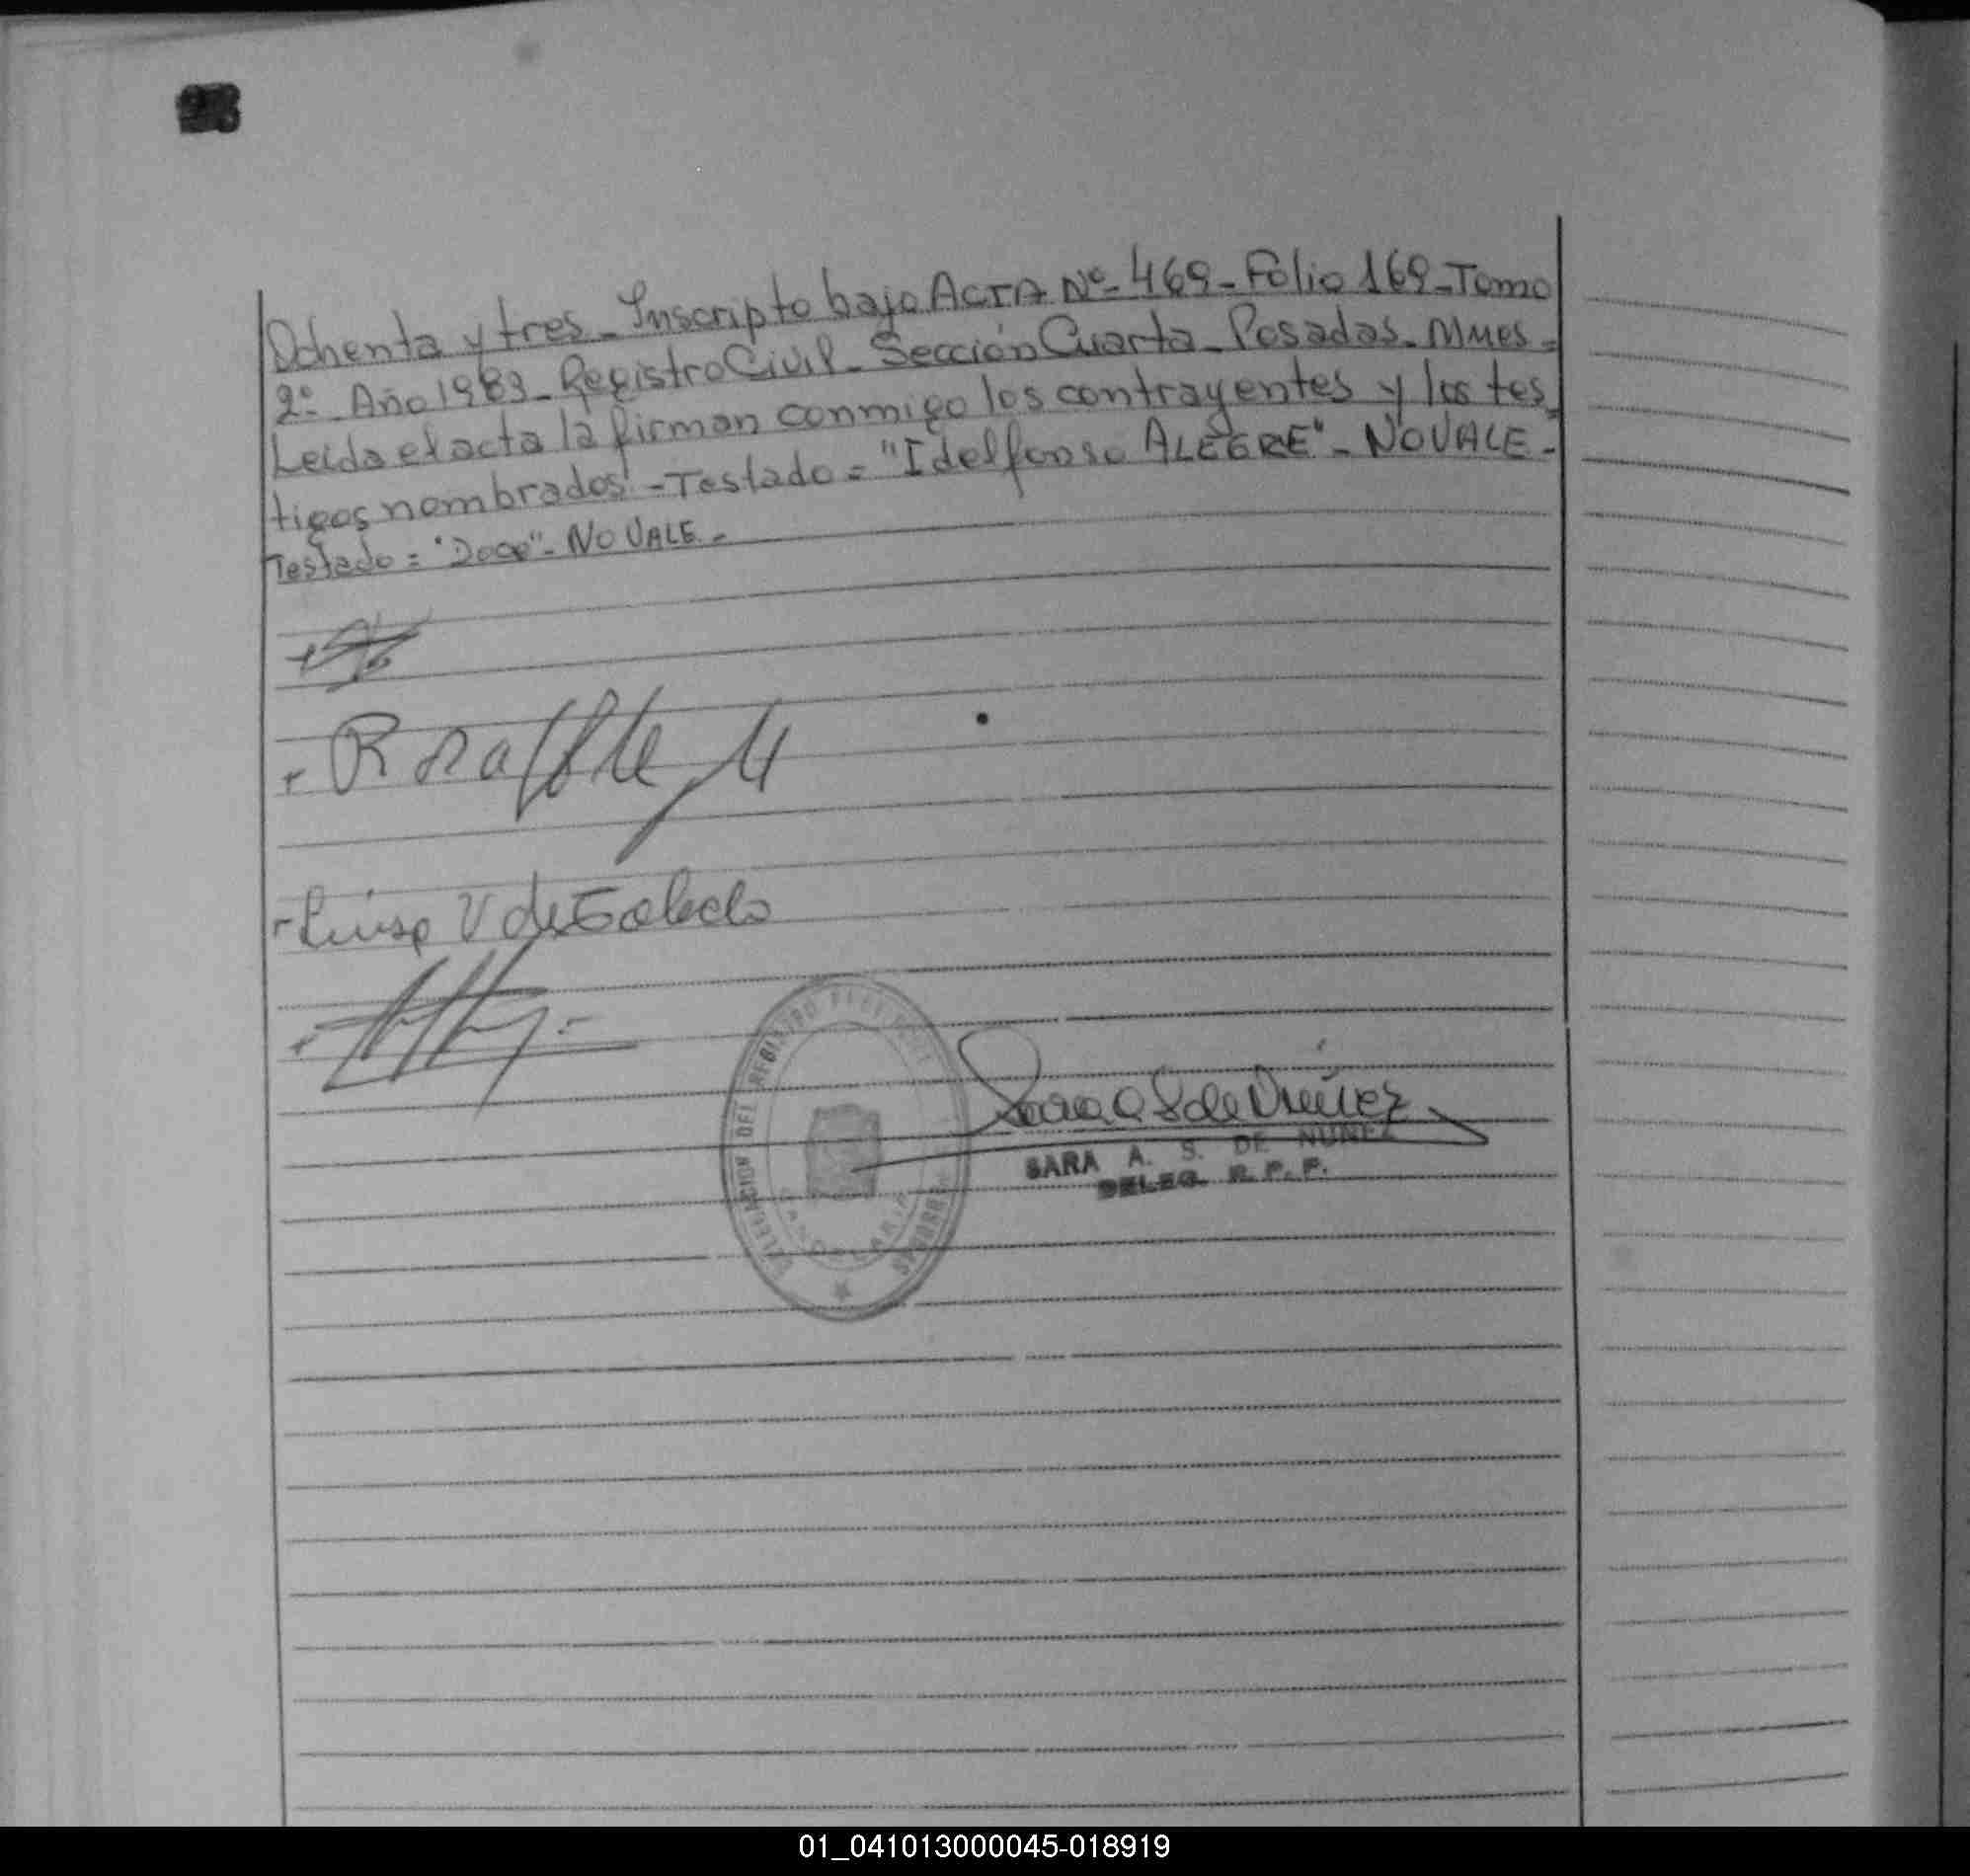 Ochenta y tres_ Inscripto bajo ACTA Nº_ 469_ Folio 169_ Tomo
2º_ Año 1983_ Registro Civil_ Sección Cuarta_ Posadas_ Mnes_
Leida el acta la firman conmigo los contrayentes y los tes_
tigos nombrados_ - Testado = "Idelfonso ALEGRE"_ NO VALE_
Testado = "Doce"_ NO VALE_
Luisa V de Toledo
DELEGACION DEL REGISTRO
CANDELARIA
Sara A S de Nuñez
SARA A. S. DE NUÑEZ
DELEG. R. P. P.
01_041013000045-018919